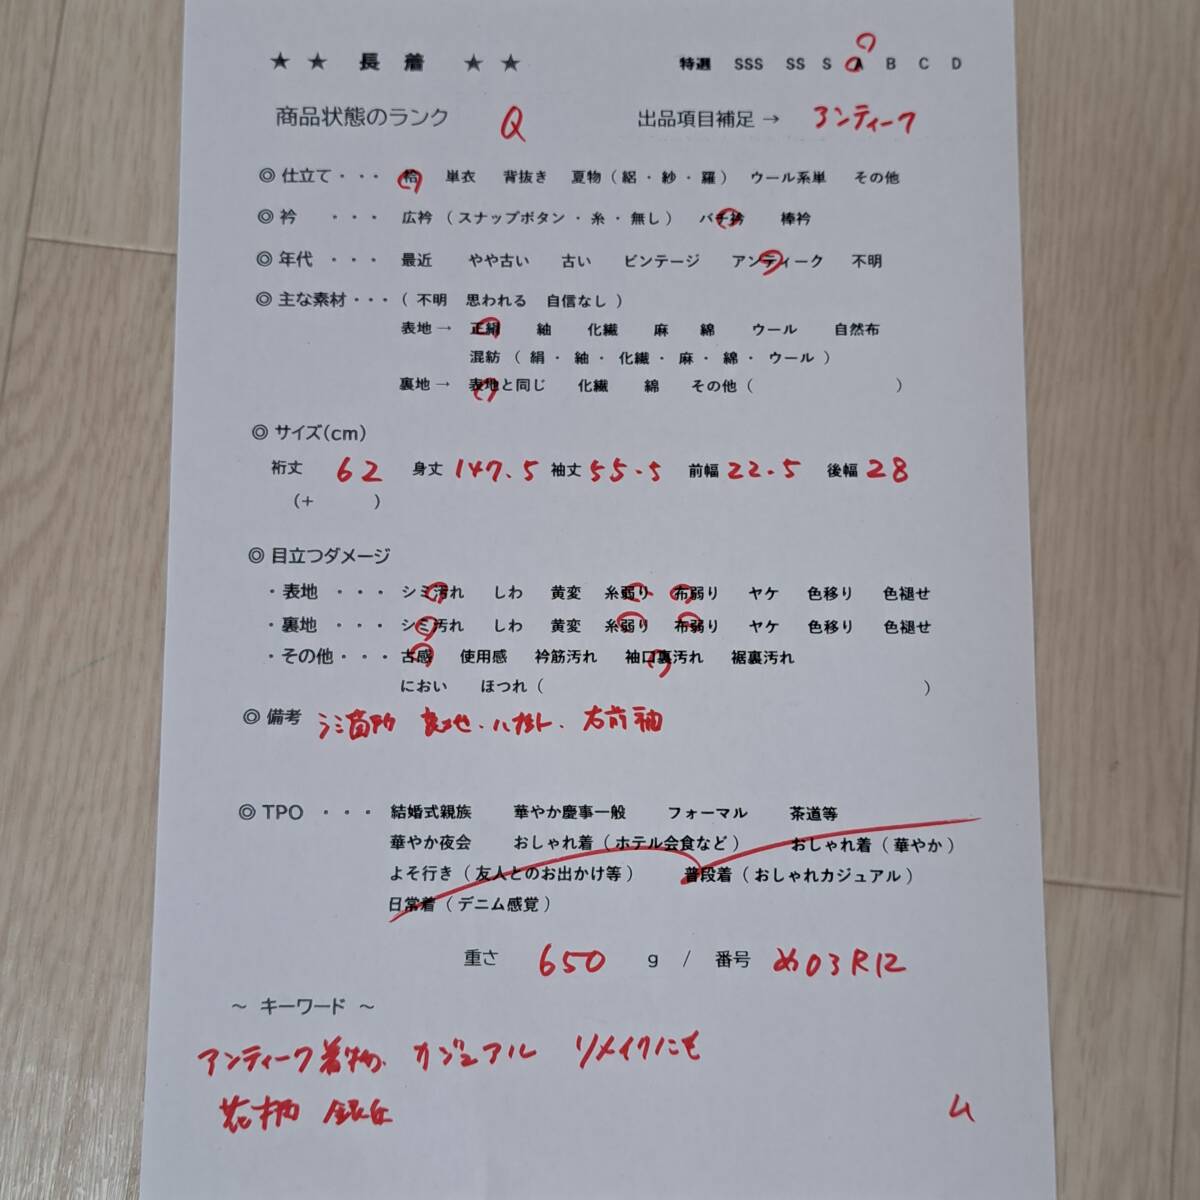 ★ ★ 長 着 ★ ★ 特選 SSS SS S A B C D
商品状態のランク Q 出品項目補足→ アンティーク
◎ 仕立て・・・ 袷 単衣 背抜き 夏物（絽・紗・羅） ウール系単 その他
◎ 衿 ・・・ 広衿（スナップボタン・糸・無し） バチ衿 棒衿
◎ 年代 ・・・ 最近 やや古い 古い ビンテージ アンティーク 不明
◎ 主な素材・・・（ 不明 思われる 自信なし ）
表地→ 正絹 紬 化繊 麻 綿 ウール 自然布
混紡（ 絹・紬・化繊・麻・綿・ウール ）
裏地→ 表地と同じ 化繊 綿 その他（ ）
◎ サイズ(cm)
裄丈 62 身丈 147.5 袖丈 55.5 前幅 22.5 後幅 28
(+ )
◎ 目立つダメージ
・表地 ・・・ シミ汚れ しわ 黄変 糸弱り 布弱り ヤケ 色移り 色褪せ
・裏地 ・・・ シミ汚れ しわ 黄変 糸弱り 布弱り ヤケ 色移り 色褪せ
・その他・・・ 古感 使用感 衿筋汚れ 袖口裏汚れ 裾裏汚れ
におい ほつれ（ ）
◎ 備考 シミ箇所 表地・八掛・右前袖
◎ TPO ・・・ 結婚式親族 華やか慶事一般 フォーマル 茶道等
華やか夜会 おしゃれ着（ホテル会食など） おしゃれ着（華やか）
よそ行き（友人とのお出かけ等） 普段着（おしゃれカジュアル）
日常着（デニム感覚）
重さ 650 g / 番号 め03R12
～ キーワード ～
アンティーク着物 カジュアル リメイクにも
花柄 銀
ム